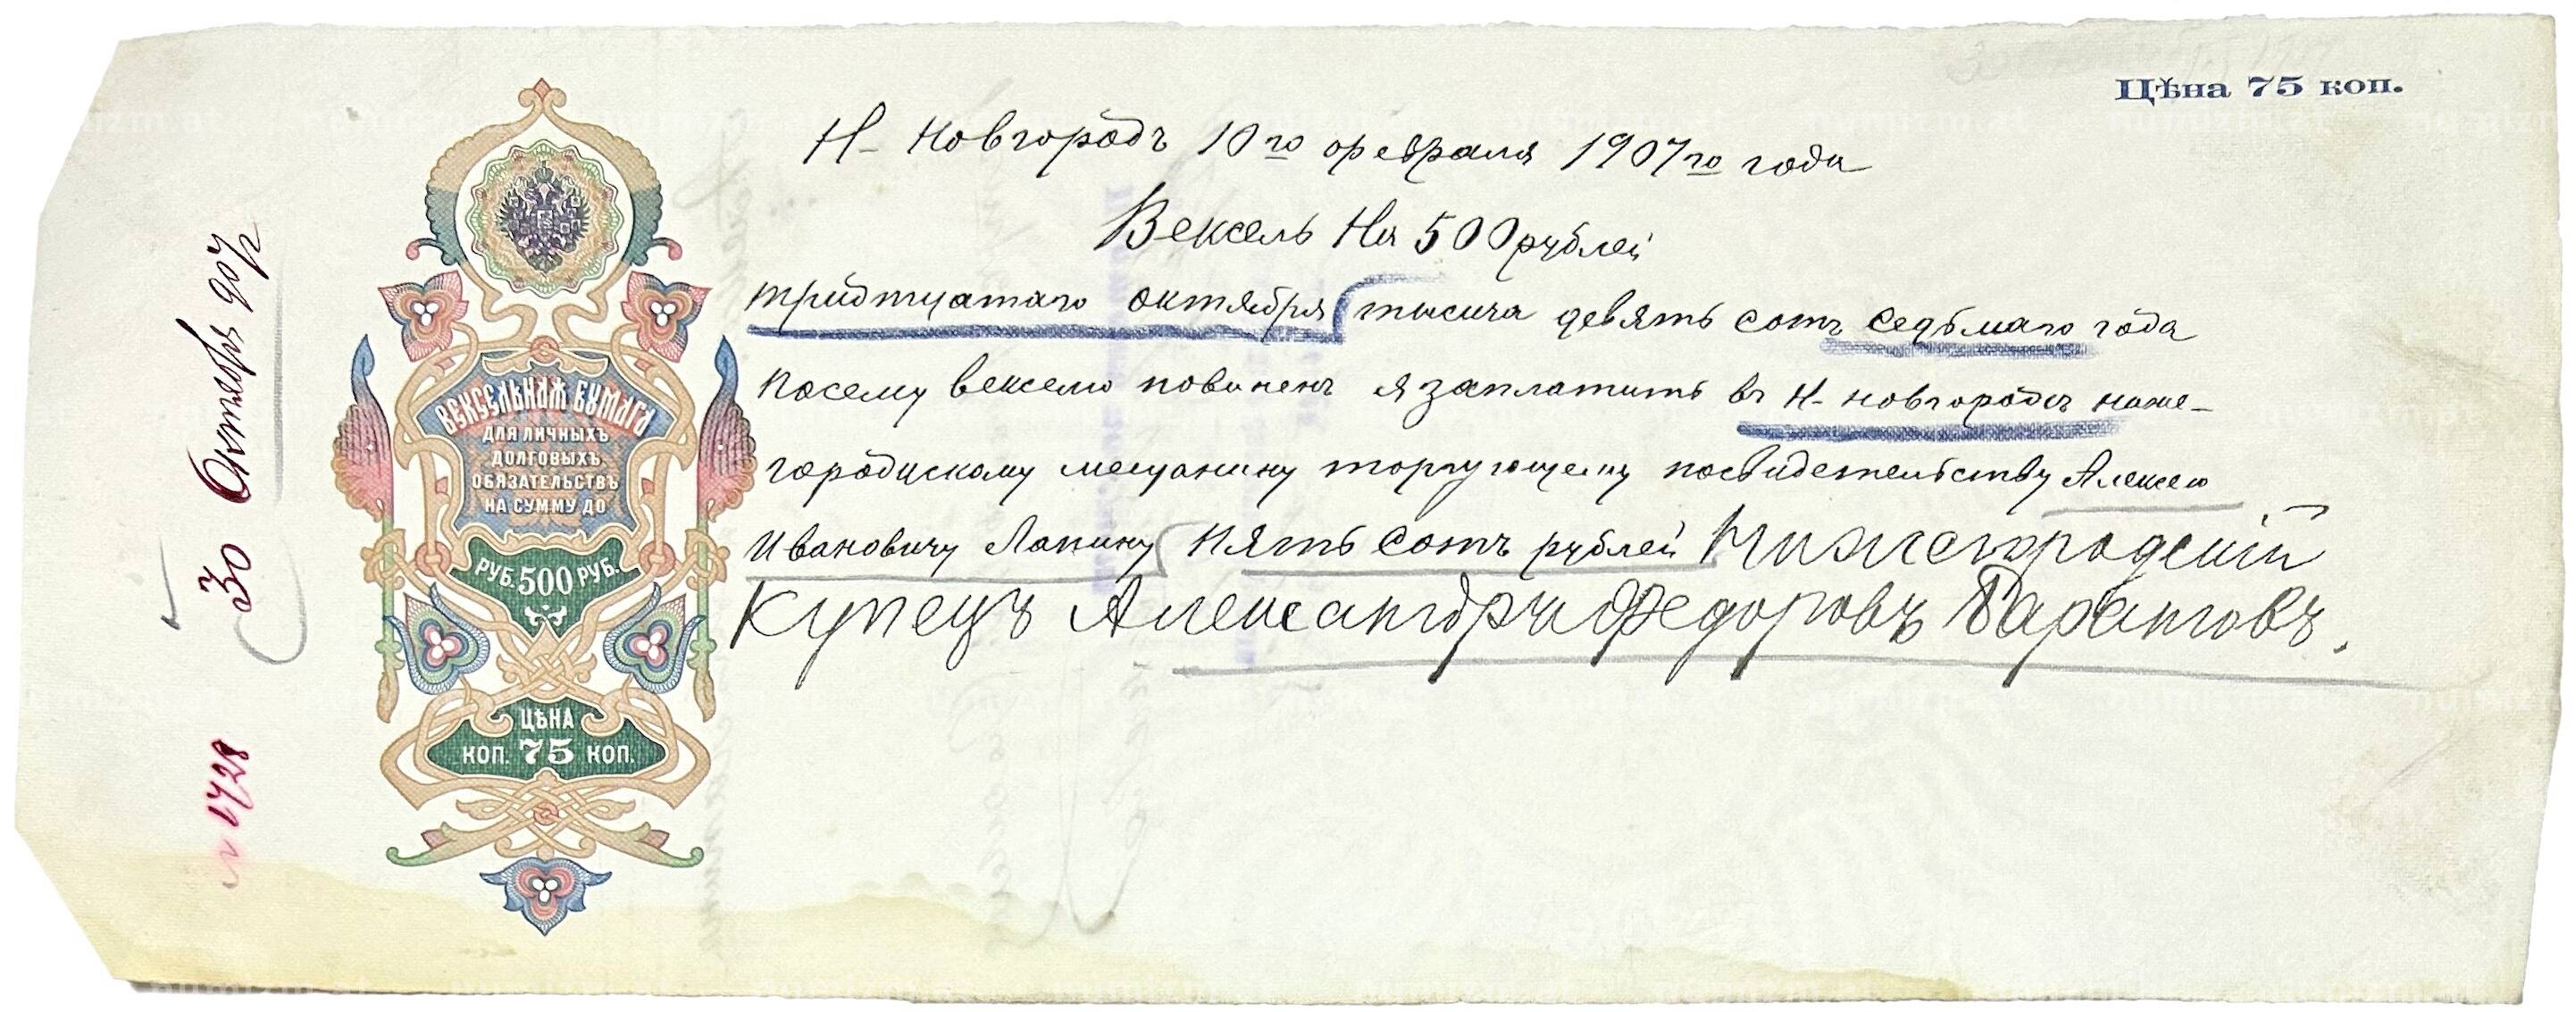 Цѣна 75 коп.
Н- Новгородъ 10го февраля 1907го года
Вексель На 500 рублей
тридтцатаго октября тысяча девять сотъ седьмаго года
посему векселю повиненъ я заплатить въ Н- новгородъ ниже-
городскому мещанину торгующему посвидетельству Алексею
Ивановичу Лапину пять сотъ рублей Нижегородский
Купецъ Александръ Федоровъ
30 Октября 907
№ 1728
ВЕКСЕЛЬНАЯ БУМАГА
ДЛЯ ЛИЧНЫХЪ
ДОЛГОВЫХЪ
ОБЯЗАТЕЛЬСТВЪ
НА СУММУ ДО
РУБ. 500 РУБ.
ЦѢНА
КОП. 75 КОП.